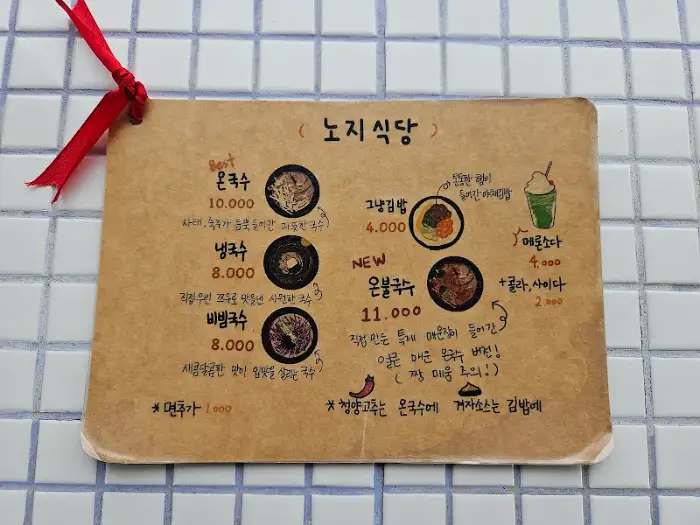 ( 노지식당 )
Best
온국수
10.000
사태, 숙주가 듬뿍 들어간 따뜻한 국수
냉국수
8.000
직접 우린 육수로 맛을낸 시원한 국수
비빔국수
8.000
새콤달콤한 맛이 입맛을 살리는 국수
* 면추가 1.000
그냥김밥
4.000
통통한 햄이
들어간 야채김밥
NEW
온불국수
11.000
직접 만든 특제 매운장이 들어간
얼큰 매운 온국수 버전!
( 짱 매움 주의! )
메론소다
4.000
+ 콜라, 사이다
2.000
* 청양고추는 온국수에 겨자소스는 김밥에